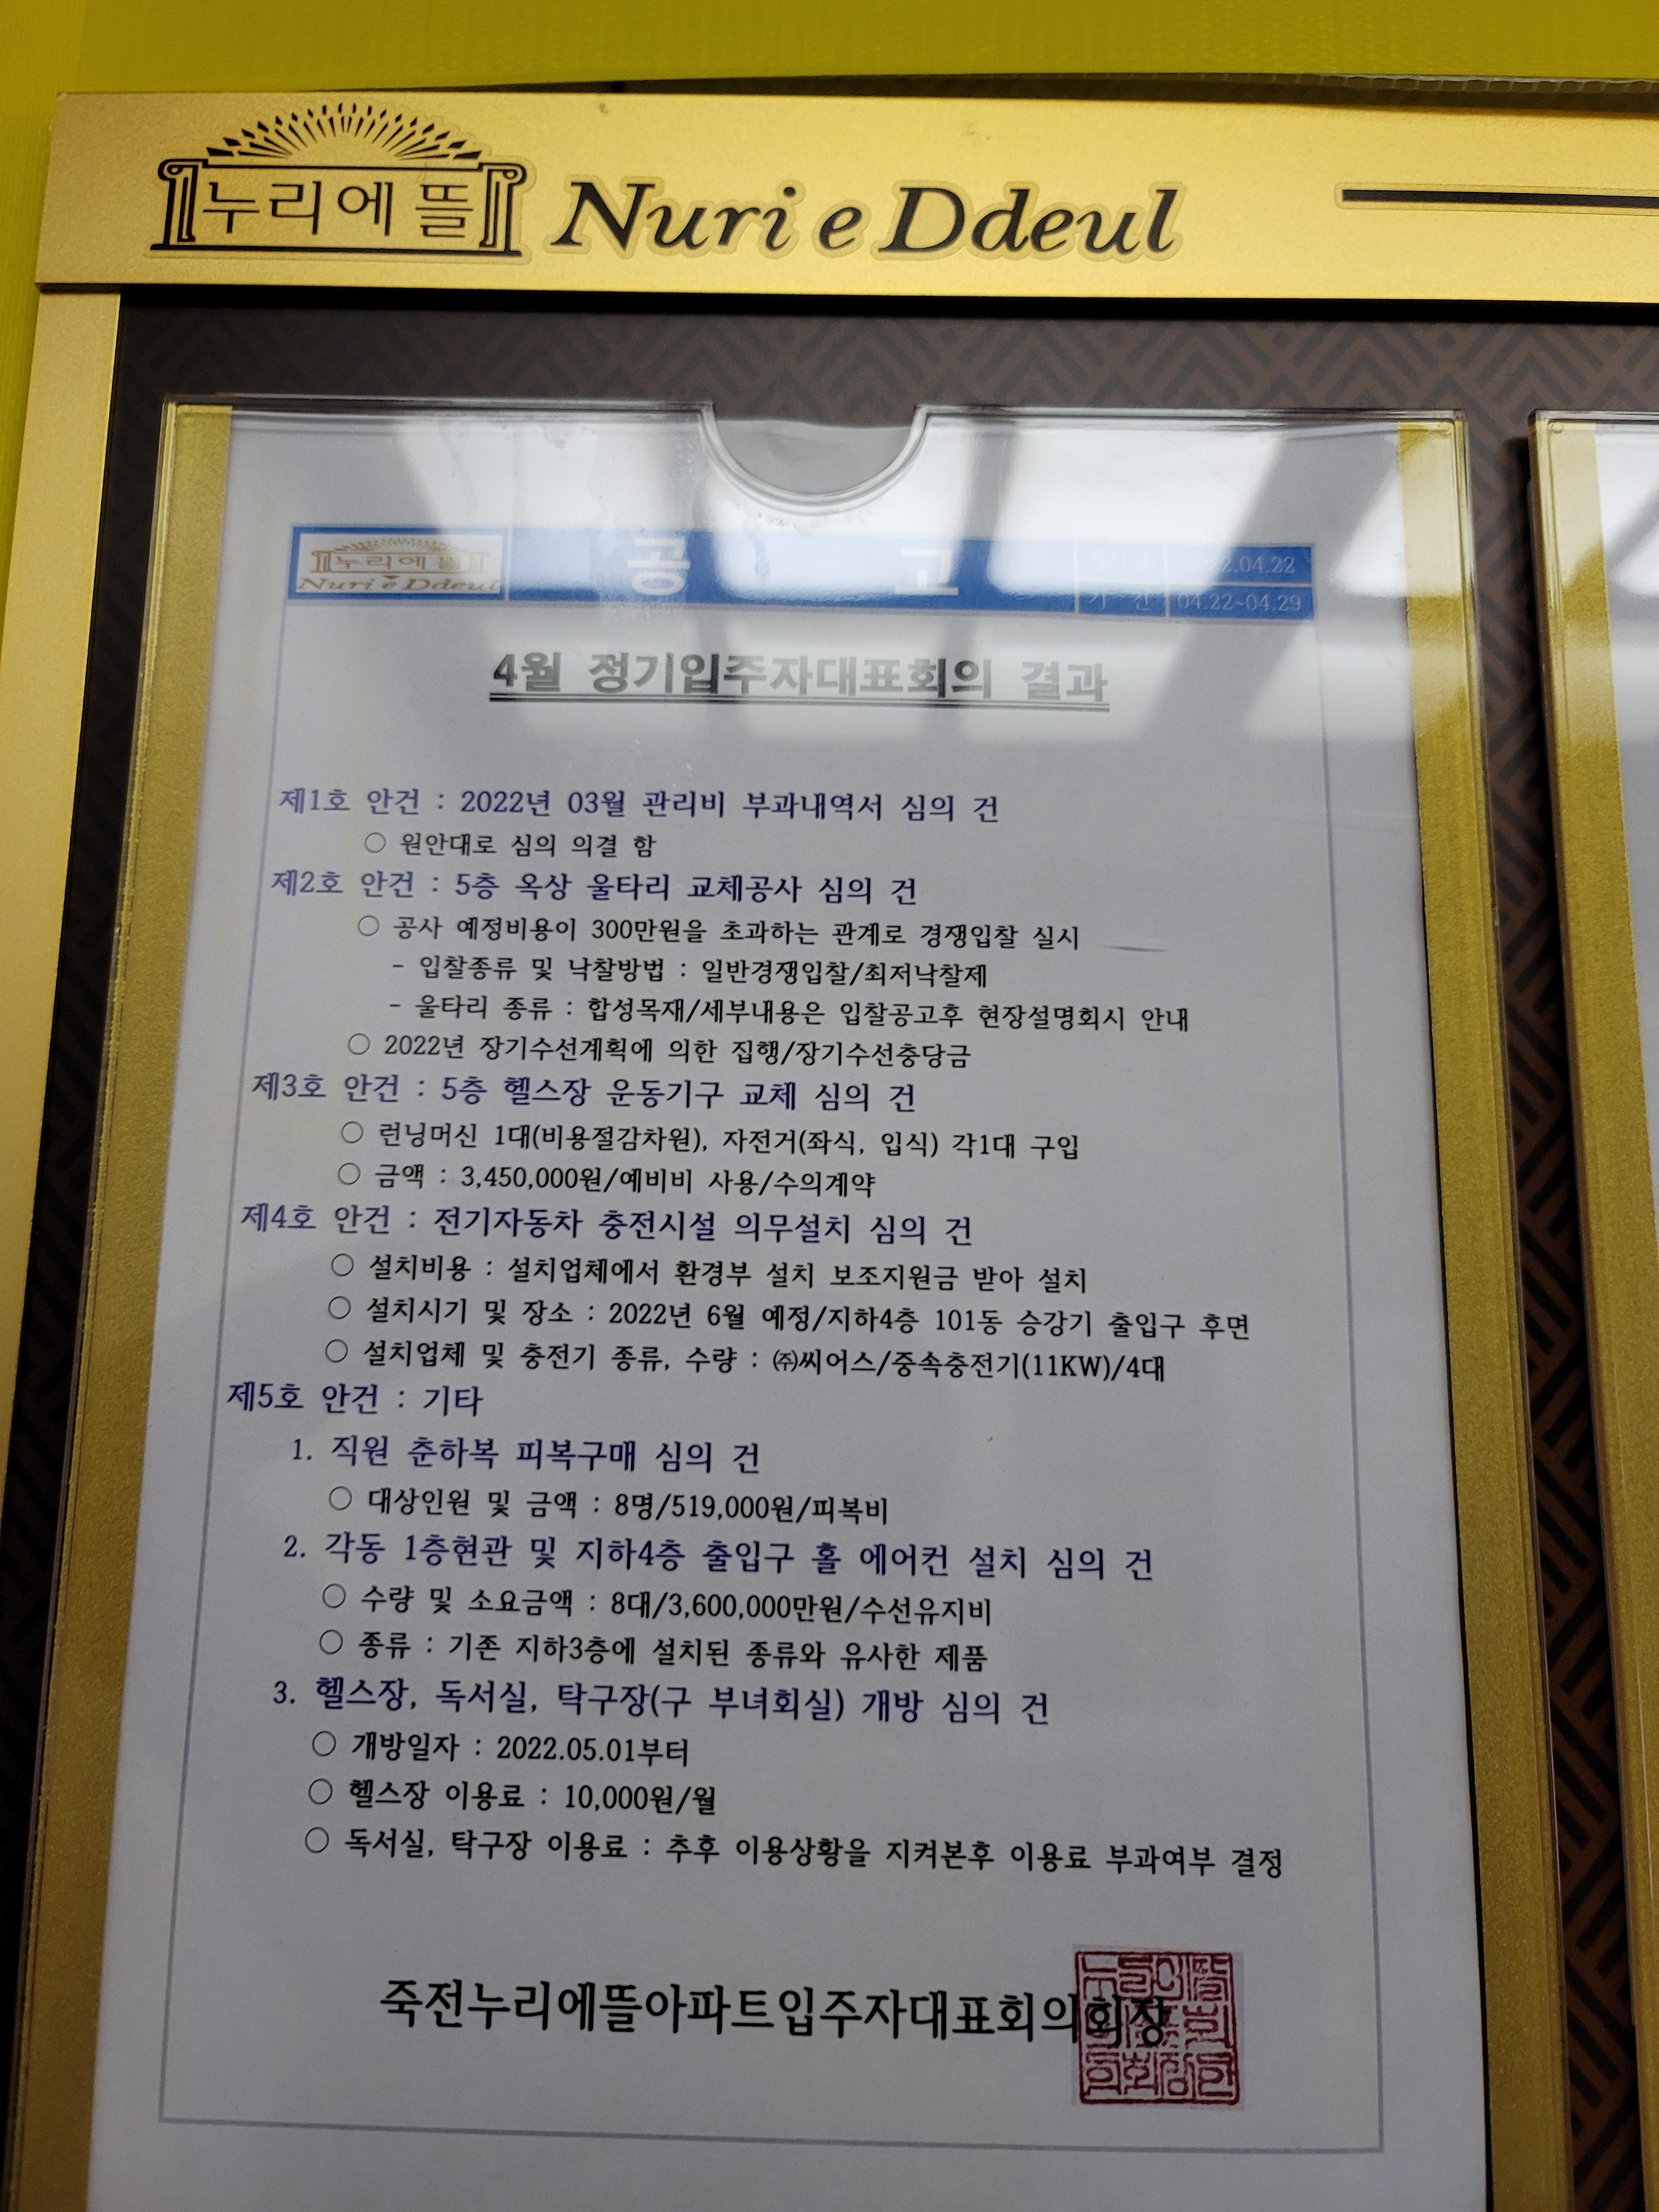 누리에 뜰 Nuri e Ddeul
누리에 뜰
Nuri e Ddeul
공 고
2.04.22
기 간 04.22~04.29
4월 정기입주자대표회의 결과
제1호 안건 : 2022년 03월 관리비 부과내역서 심의 건
○ 원안대로 심의 의결 함
제2호 안건 : 5층 옥상 울타리 교체공사 심의 건
○ 공사 예정비용이 300만원을 초과하는 관계로 경쟁입찰 실시
- 입찰종류 및 낙찰방법 : 일반경쟁입찰/최저낙찰제
- 울타리 종류 : 합성목재/세부내용은 입찰공고후 현장설명회시 안내
○ 2022년 장기수선계획에 의한 집행/장기수선충당금
제3호 안건 : 5층 헬스장 운동기구 교체 심의 건
○ 런닝머신 1대(비용절감차원), 자전거(좌식, 입식) 각1대 구입
○ 금액 : 3,450,000원/예비비 사용/수의계약
제4호 안건 : 전기자동차 충전시설 의무설치 심의 건
○ 설치비용 : 설치업체에서 환경부 설치 보조지원금 받아 설치
○ 설치시기 및 장소 : 2022년 6월 예정/지하4층 101동 승강기 출입구 후면
○ 설치업체 및 충전기 종류, 수량 : ㈜씨어스/중속충전기(11KW)/4대
제5호 안건 : 기타
1. 직원 춘하복 피복구매 심의 건
○ 대상인원 및 금액 : 8명/519,000원/피복비
2. 각동 1층현관 및 지하4층 출입구 홀 에어컨 설치 심의 건
○ 수량 및 소요금액 : 8대/3,600,000만원/수선유지비
○ 종류 : 기존 지하3층에 설치된 종류와 유사한 제품
3. 헬스장, 독서실, 탁구장(구 부녀회실) 개방 심의 건
○ 개방일자 : 2022.05.01부터
○ 헬스장 이용료 : 10,000원/월
○ 독서실, 탁구장 이용료 : 추후 이용상황을 지켜본후 이용료 부과여부 결정
죽전누리에뜰아파트입주자대표회의회장